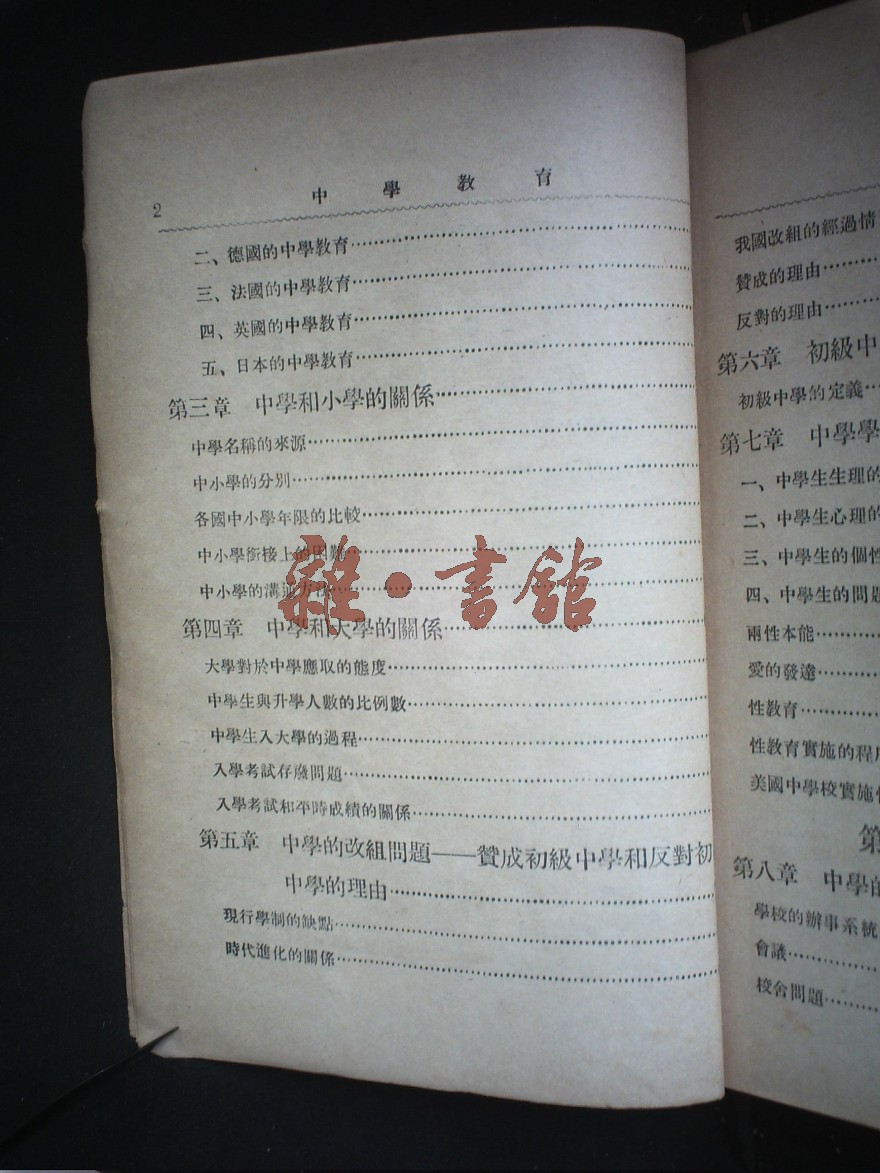 2
中學教育
二、德國的中學教育
三、法國的中學教育
四、英國的中學教育
五、日本的中學教育
第三章　中學和小學的關係
中學名稱的來源
中小學的分別
各國中小學年限的比較
中小學銜接上的困難
中小學的溝通方法
第四章　中學和大學的關係
大學對於中學應取的態度
中學生與升學人數的比例數
中學生入大學的過程
入學考試存廢問題
入學考試和平時成績的關係
第五章　中學的改組問題——贊成初級中學和反對初
中學的理由
現行學制的缺點
時代進化的關係
雜·書館
我國改組的經過情
贊成的理由
反對的理由
第六章　初級中
初級中學的定義
第七章　中學學
一、中學生生理的
二、中學生心理的
三、中學生的個性
四、中學生的問題
兩性本能
愛的發達
性教育
性教育實施的程序
美國中學校實施性
第
第八章　中學的
學校的辦事系統
會議
校舍問題